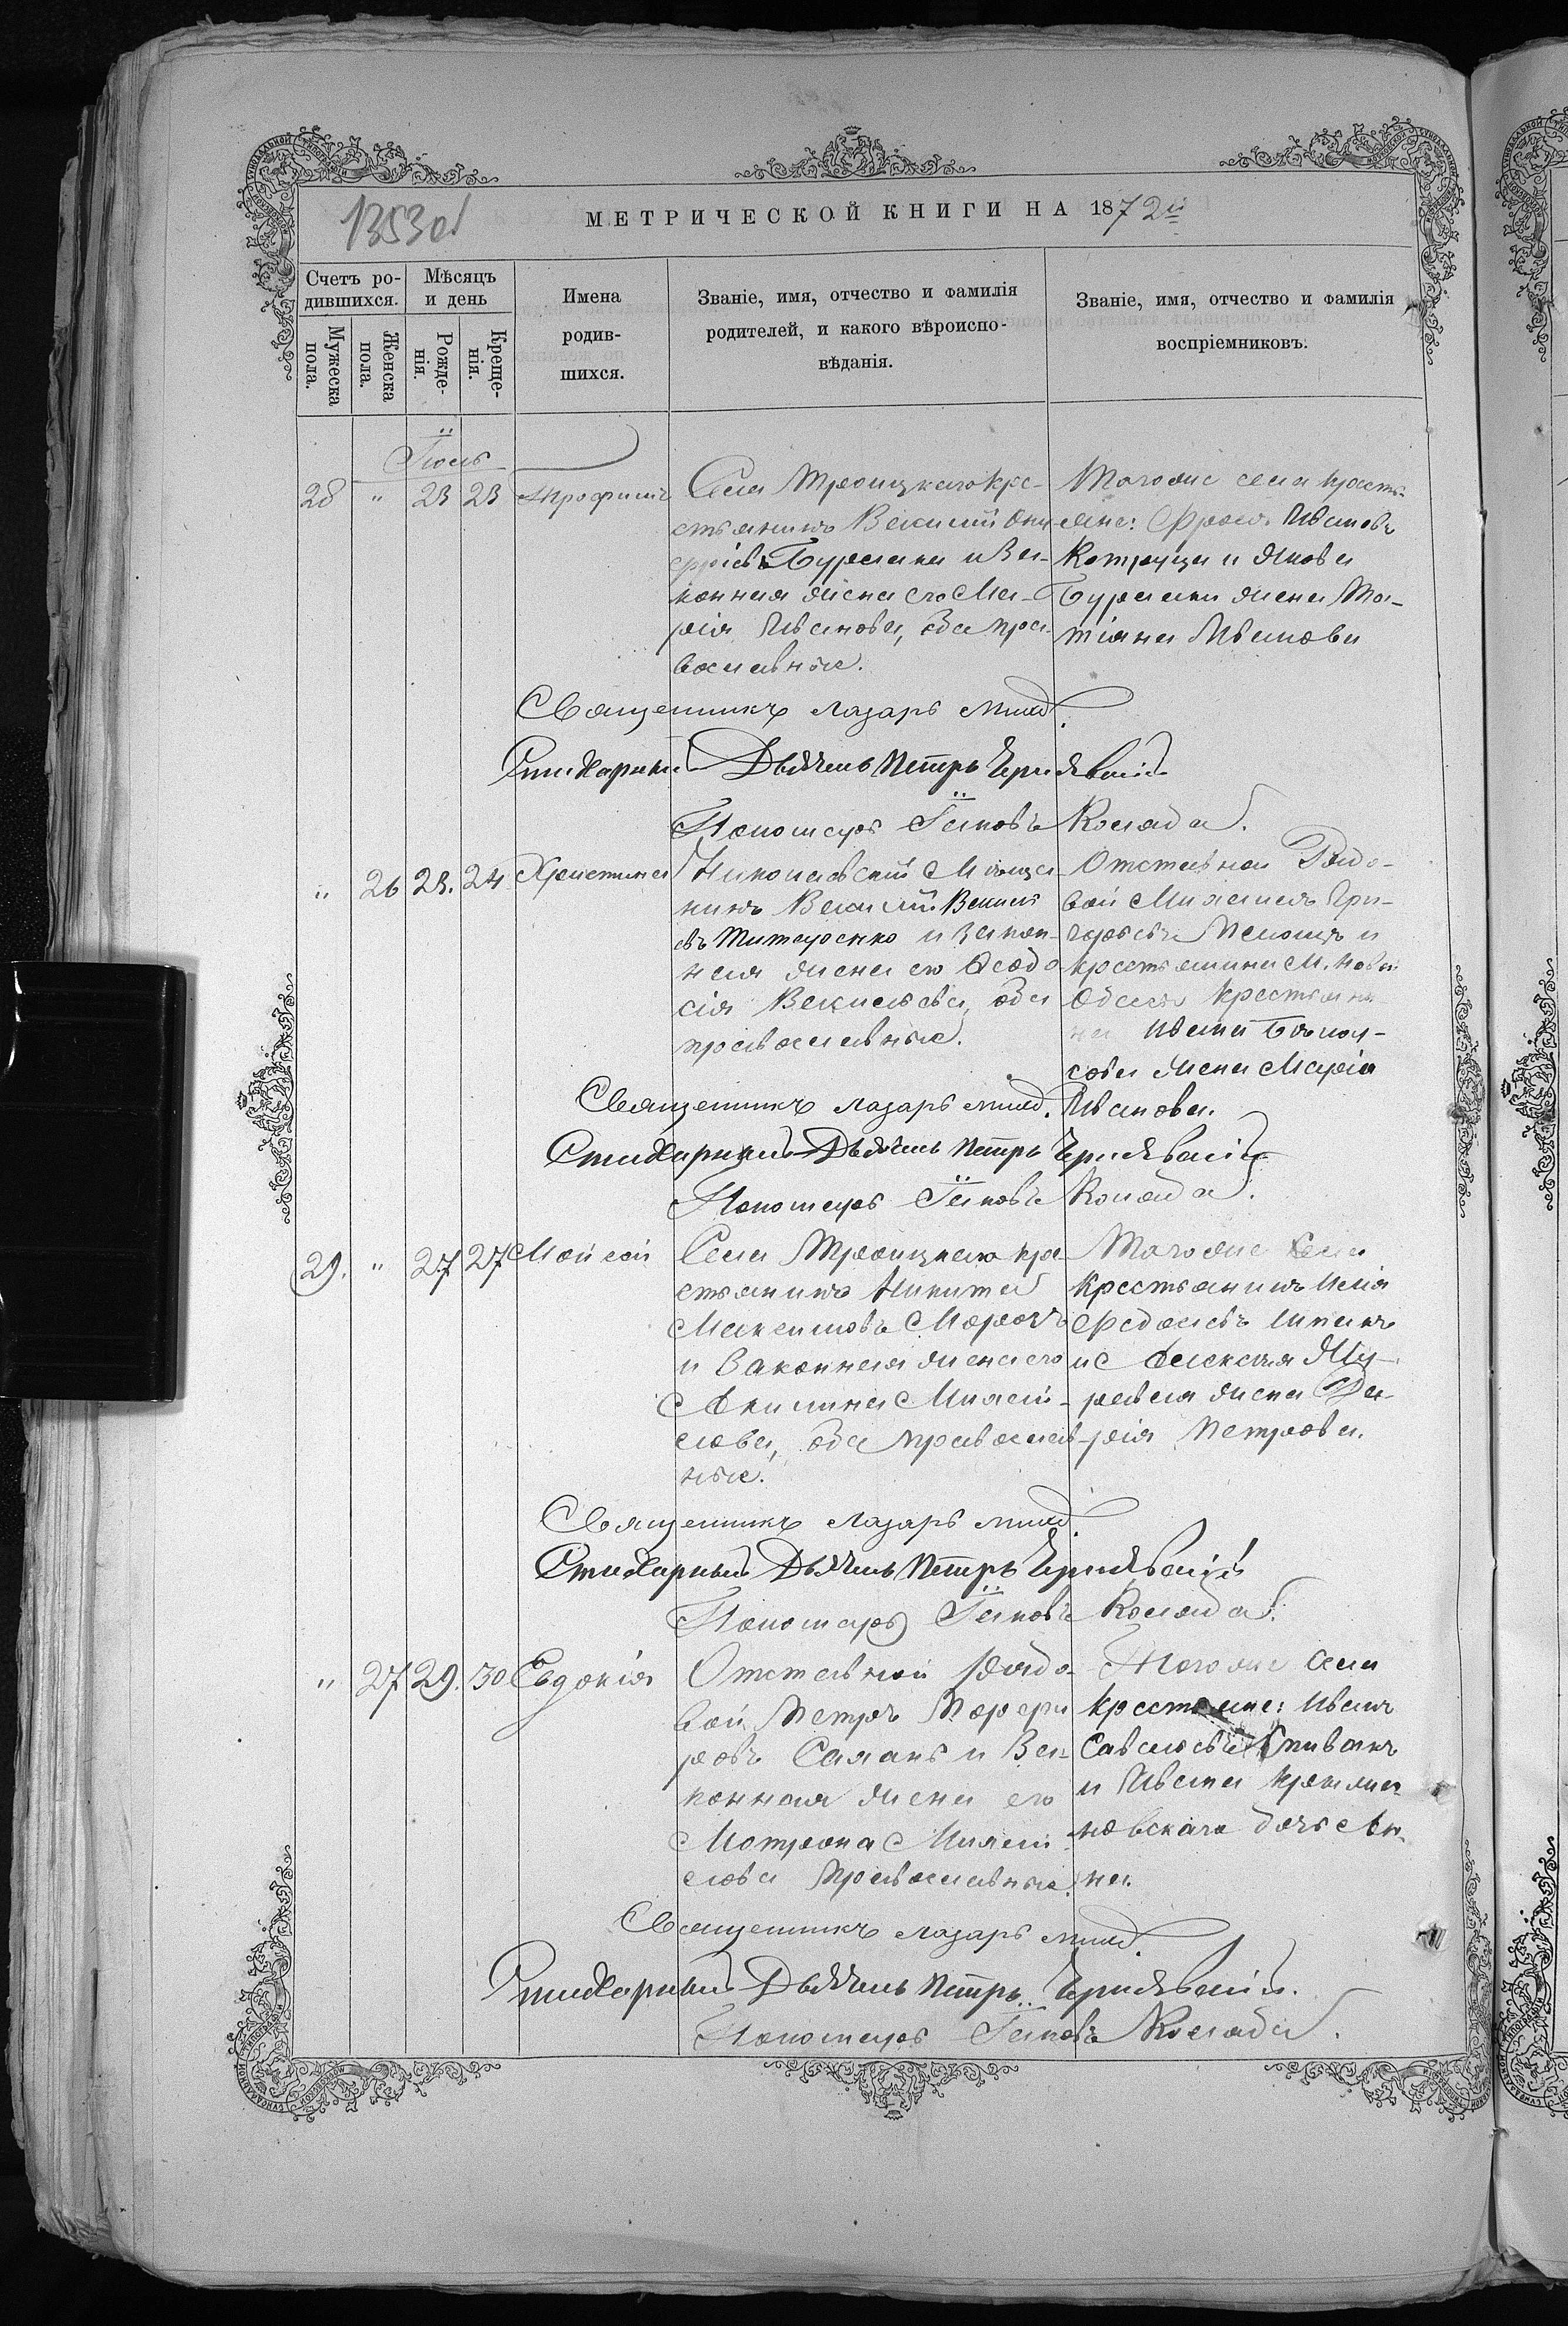 1353 об
МЕТРИЧЕСКОЙ КНИГИ НА 1872й
Счетъ ро-
дившихся.
Мужеска
пола.
Женска
пола.
Мѣсяцъ
и день
Рожде-
нія.
Креще-
нія.
Имена
родив-
шихся.
Званіе, имя, отчество и фамилія
родителей, и какого вѣроиспо-
вѣданія.
Званіе, имя, отчество и фамилія
воспріемниковъ.
Іюль
28 " 23 23 Трофимъ
Села Троицкаго кре-
стьянинъ Василій Они
сѣрiевъ Бурлака и За-
конная жена его Ма-
рія Иванова, оба пра-
вославные.
Тогоже села кресть-
яне: Фролъ Ивановъ
и Якова
Бурлаки жена Та-
тіяна Иванова
Священникъ Лазарь
Стихарный Дьячекъ Петръ
Пономарь Іаковъ Коляда.
" 26 23. 24 Христина
Николаевскій Мѣща
нинъ Василій Василь
евъ Титаренко и Закон-
ная жена его Ѳеодо
сія Васильева, оба
православные.
Отставной Рядо-
вой Михаилъ Гри-
горьевъ и
крестьянина М. Нова
Одеса крестьяни
на Ивана
жена Марія
Иванова.
Священникъ Лазарь
Стихарный Дьячекъ Петръ
Пономарь Іаковъ Коляда.
29. " 27 27 Мойсей
Села Троицкаго кре
стьянинъ Никита
Максимовъ Морозъ
и Законная жена его
Акилина Михаи-
лова, оба православ-
ные.
Тогоже села
крестьянинъ Илія
Федоровъ
и Алексѣя Жу-
равля жена Да-
рія Петрова.
Священникъ Лазарь
Стихарный Дьячекъ Петръ
Пономарь Іаковъ Коляда.
" 27 29. 30 Евдокія
Отставной Рядо-
вой Петръ Порфи
ровъ и За-
конная жена его
Мотрона Михаи-
лова Православные.
Тогоже села
крестьяне: Иванъ
Савельевъ Спивакъ
и Ивана
дочь Ан-
на.
Священникъ Лазарь
Стихарный Дьячекъ Петръ
Пономарь Іаковъ Коляда.